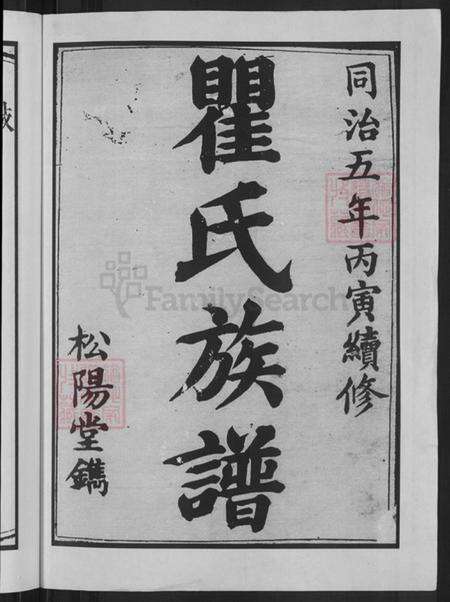 同治五年丙寅續修
瞿氏族譜
松陽堂鐫
FamilySearch